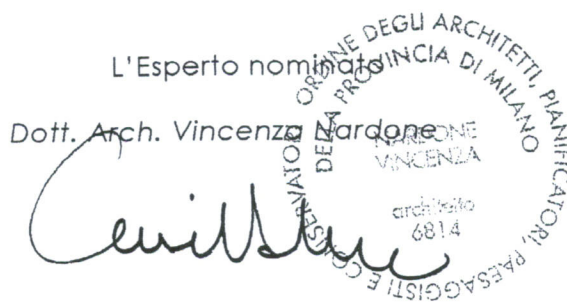 L'Esperto nominato
Dott. Arch. Vincenza Nardone
ORDINE DEGLI ARCHITETTI, PIANIFICATORI, PAESAGGISTI E CONSERVATORI
DELLA PROVINCIA DI MILANO
NARDONE
VINCENZA
architetto
6814